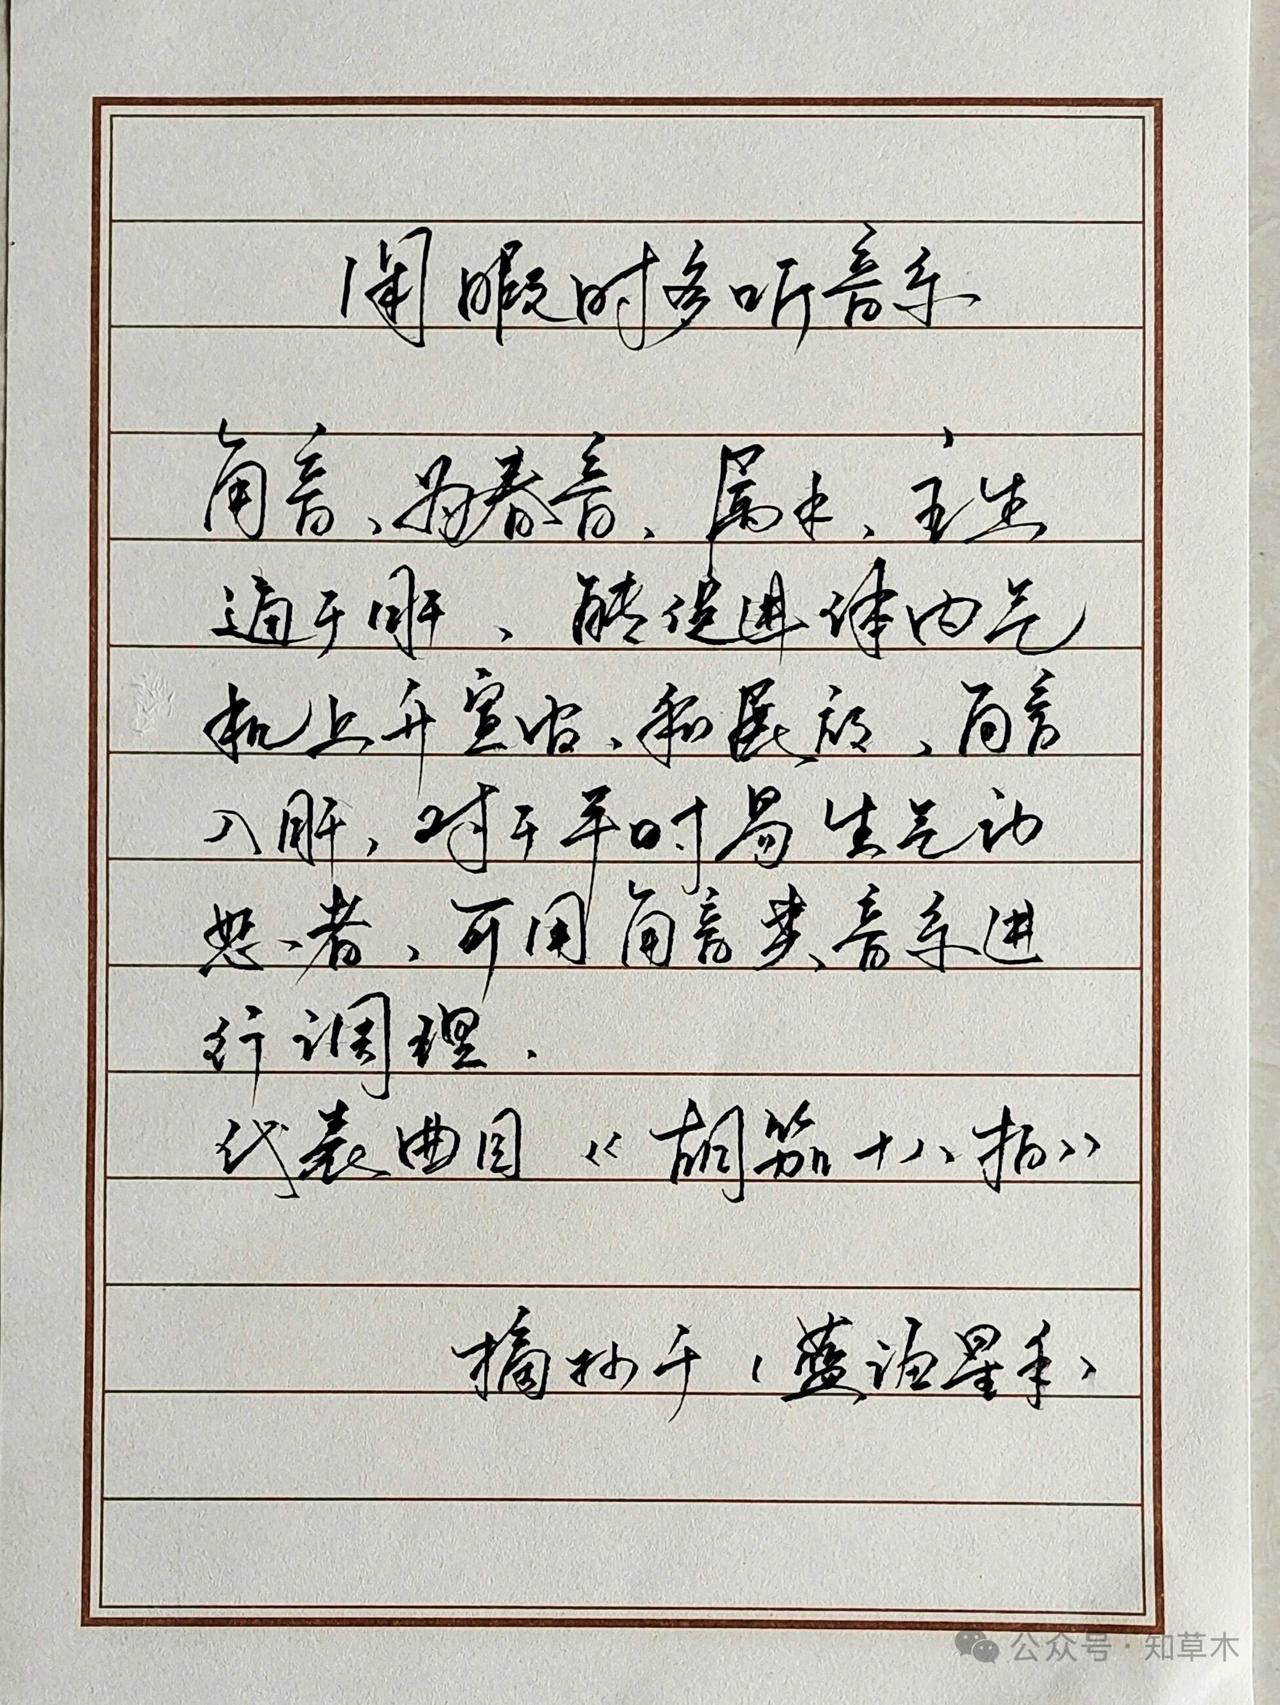 闲暇时多听音乐
角音、为春音、属木、主生
通于肝、能促进体内气
机上升宣发、和展放、角音
入肝,对于平时易生气动
怒者、可用角音类音乐进
行调理.
代表曲目《胡笳十八拍》
摘抄于(蓝谊星手)
公众号·知草木